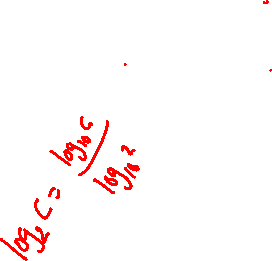 log₂ C = log₁₀ C / log₁₀ 2